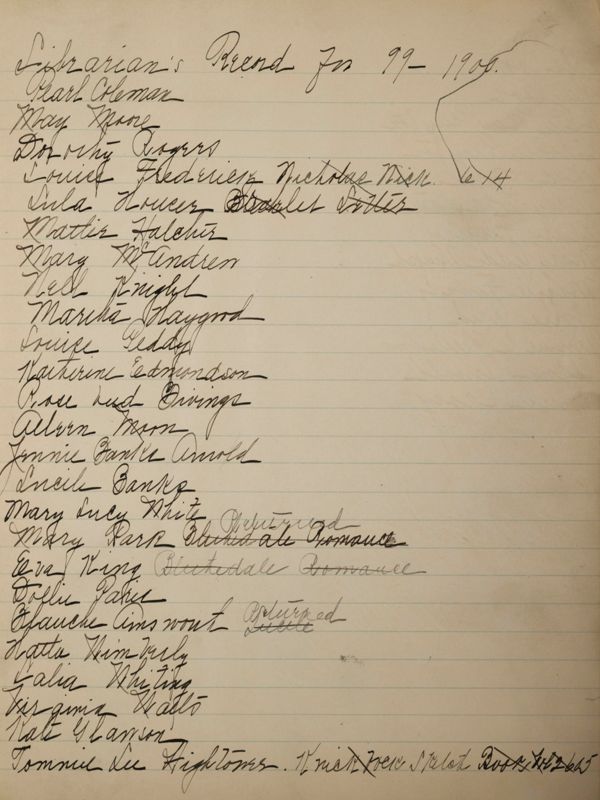 Librarian's Record for 99-1900.
Pearl Coleman
May Moore
Dorothy Rogers
Louise Frederick Nicholas Nick.
Lula Houser Scarlet Letter
Mattie Hatcher
Mary McAndrew
Nell Knight
Martha Haygood
Louise Geddy
Katherine Edmondson
Rose Givings
Aileen Moon
Jennie Banks Arnold
Lucile Banks
Mary Lucy White
Returned
Mary Park Blithedale Romance
Eva King Blithedale Romance
Dollie
Blanche Returned
Lucile
Hatta Wimberly
Lalia Whiting
Virginia
Kate Glawson
Tommie Lee Hightower. Knick Sketch Book